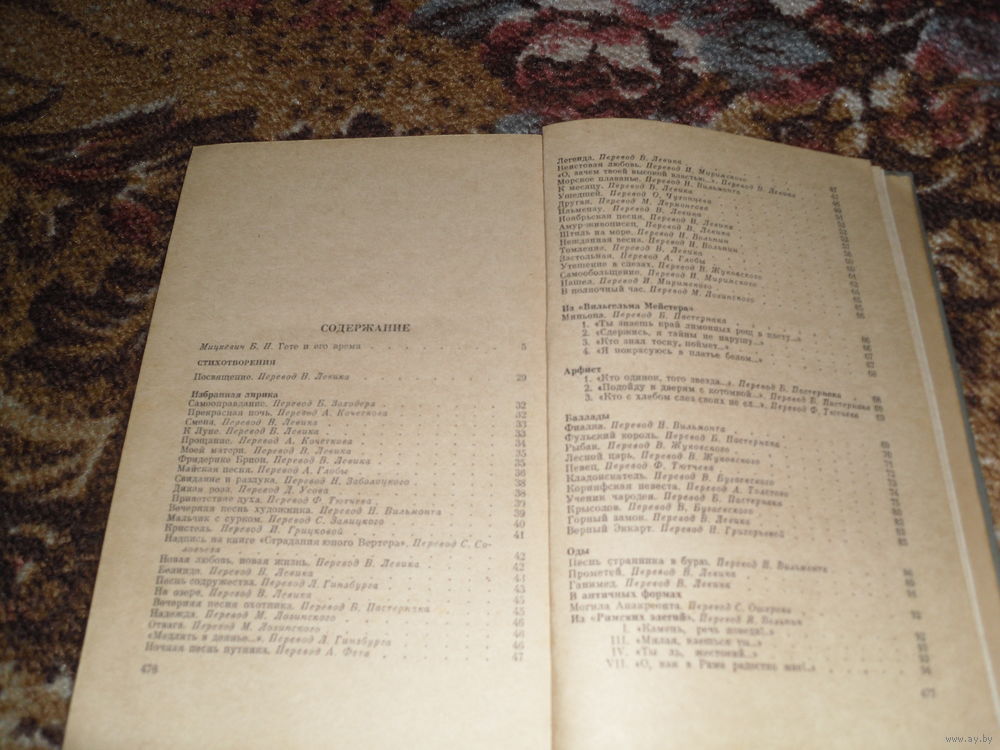 СОДЕРЖАНИЕ
Мицкевич Б. П. Гете и его время 5
СТИХОТВОРЕНИЯ
Посвящение. Перевод В. Левика 29
Избранная лирика
Самооправдание. Перевод Б. Заходера 32
Прекрасная ночь. Перевод А. Кочеткова 32
Смена. Перевод В. Левика 33
К Луне. Перевод В. Левика 33
Прощание. Перевод А. Кочеткова 34
Моей матери. Перевод В. Левика 35
Фридерике Брион. Перевод В. Левика 35
Майская песня. Перевод А. Глобы 36
Свидание и разлука. Перевод Н. Заболоцкого 38
Дикая роза. Перевод Д. Усова 38
Приветствие духа. Перевод Ф. Тютчева 39
Вечерняя песня художника. Перевод Н. Вильмонта 39
Мальчик с сурком. Перевод С. Заяицкого 40
Кристель. Перевод И. Грицковой 41
Надпись на книге «Страдания юного Вертера». Перевод С. Со-
ловьева 42
Новая любовь, новая жизнь. Перевод В. Левика 42
Белинде. Перевод В. Левика 43
Песнь содружества. Перевод Л. Гинзбурга 43
На озере. Перевод В. Левика 45
Вечерняя песня охотника. Перевод Б. Пастернака 45
Надежда. Перевод М. Лозинского 46
Отвага. Перевод М. Лозинского 46
«Медлить в деянье...» Перевод Л. Гинзбурга 46
Ночная песнь путника. Перевод А. Фета 47
476
Легенда. Перевод В. Левика
Неистовая любовь. Перевод И. Миримского
«О, зачем твоей высокой властью...». Перевод В. Левика
Морское плаванье. Перевод Н. Вильмонта
К месяцу. Перевод В. Левика
Ушедшей. Перевод О. Чухонцева
Другая. Перевод М. Лермонтова
Ильменау. Перевод В. Левика
Ноябрьская песня. Перевод В. Левика
Амур-живописец. Перевод В. Левика
Штиль на море. Перевод Н. Вольпин
Нежданная весна. Перевод Н. Вольпин
Томление. Перевод В. Левика
Застольная. Перевод А. Глобы
Утешение в слезах. Перевод В. Жуковского
Самообольщение. Перевод И. Миримского
Нашел. Перевод И. Миримского
В полночный час. Перевод М. Лозинского
Из «Вильгельма Мейстера»
Миньона. Перевод Б. Пастернака
1. «Ты знаешь край лимонных рощ в цвету...»
2. «Сдержись, я тайны не нарушу...» 66
3. «Кто знал тоску, поймет...» 67
4. «Я покрасуюсь в платье белом...» 68
Арфист
1. «Кто одинок, того звезда...». Перевод Б. Пастернака 68
2. «Подойду к дверям с котомкой». Перевод Б. Пастернака 69
3. «Кто с хлебом слез своих не ел...» Перевод Ф. Тютчева
Баллады
Фиалка. Перевод Н. Вильмонта
Фульский король. Перевод Б. Пастернака
Рыбак. Перевод В. Жуковского
Лесной царь. Перевод В. Жуковского
Певец. Перевод Ф. Тютчева
Кладоискатель. Перевод В. Бугаевского
Коринфская невеста. Перевод А. Толстого
Ученик чародея. Перевод Б. Пастернака
Крысолов. Перевод В. Бугаевского
Горный замок. Перевод В. Левика
Верный Эккарт. Перевод И. Григорьевой
Оды
Песнь странника в бурю. Перевод Н. Вильмонта
Прометей. Перевод В. Левика
Ганимед. Перевод В. Левика
В античных формах
Могила Анакреонта. Перевод С. Ошерова
Из «Римских элегий». Перевод Н. Вольпин
I. «Камень, речь поведи!..»
III. «Милая, каешься ты...»
IV. «Ты ль, жестокий...»
VII. «О, как в Риме радостно мне!..»
477
www.ay.by